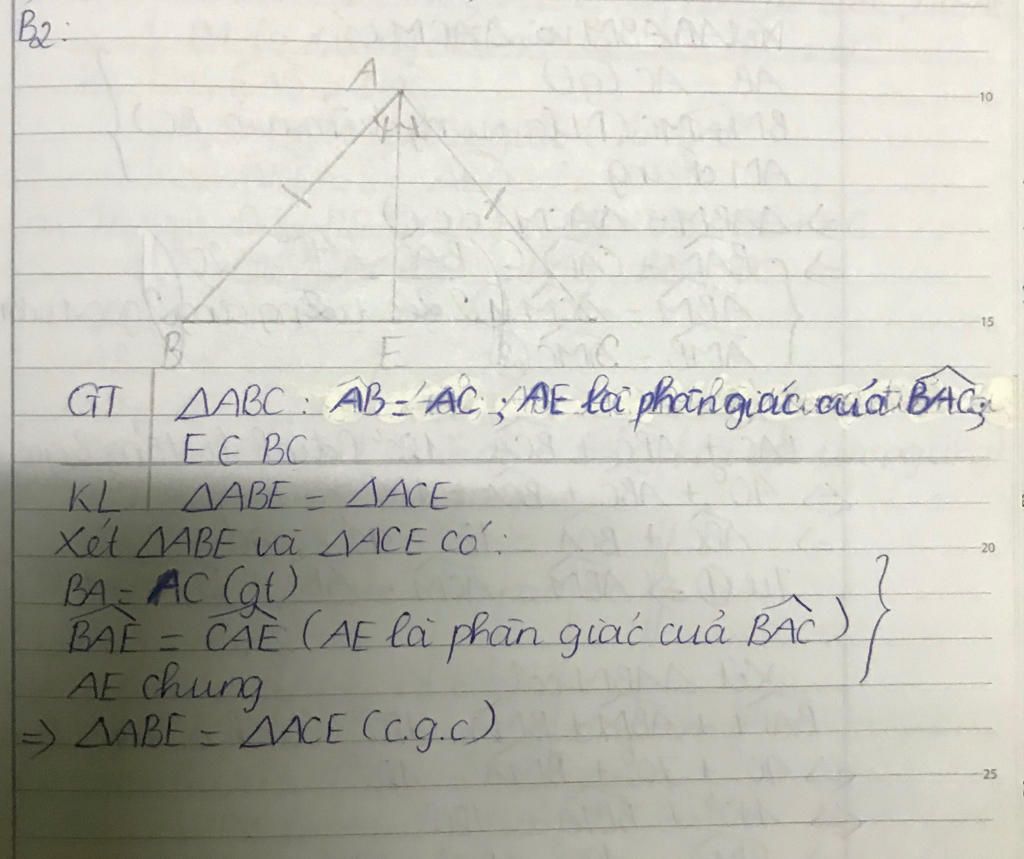 B2:
A
10
15
B E
GT ΔABC : AB = AC ; AE là phân giác của \widehat{BAC};
E ∈ BC
KL ΔABE = ΔACE
Xét ΔABE và ΔACE có:
20
BA = AC (gt)
\widehat{BAE} = \widehat{CAE} (AE là phân giác cuả \widehat{BAC}) }
AE chung
=> ΔABE = ΔACE (c.g.c)
25